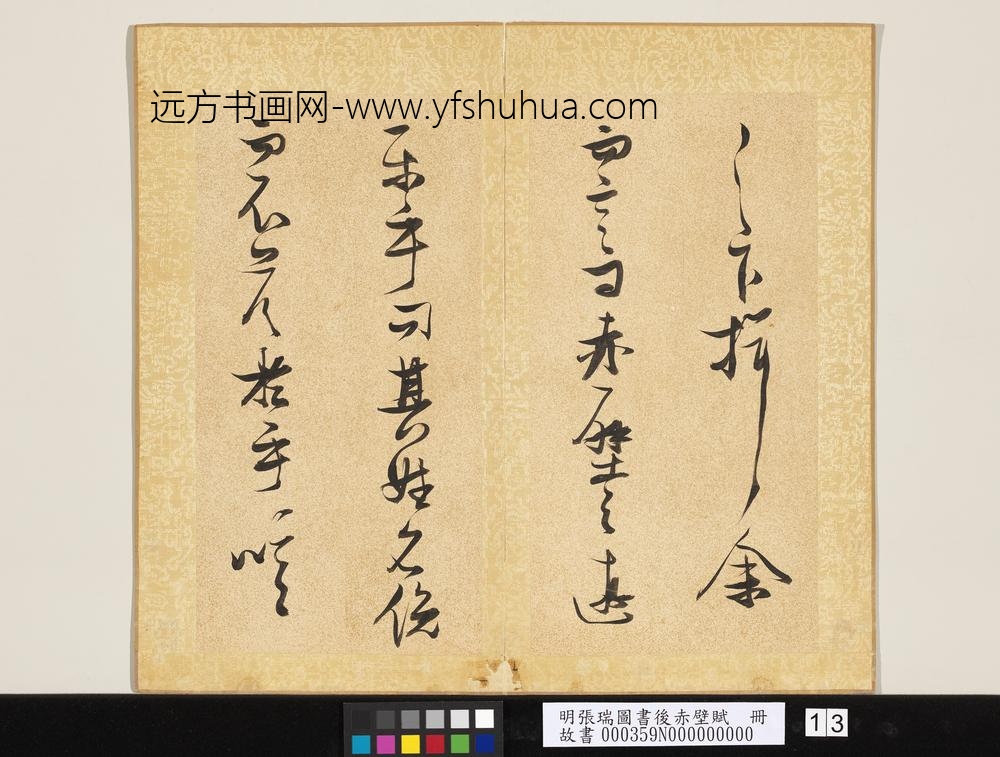 远方书画网-www.yfshuhua.com
之下揖余
而言曰赤壁之遊
樂乎問其姓名俛
而不答於乎噫
明張瑞圖書後赤壁賦 冊
故書000359N000000000
13